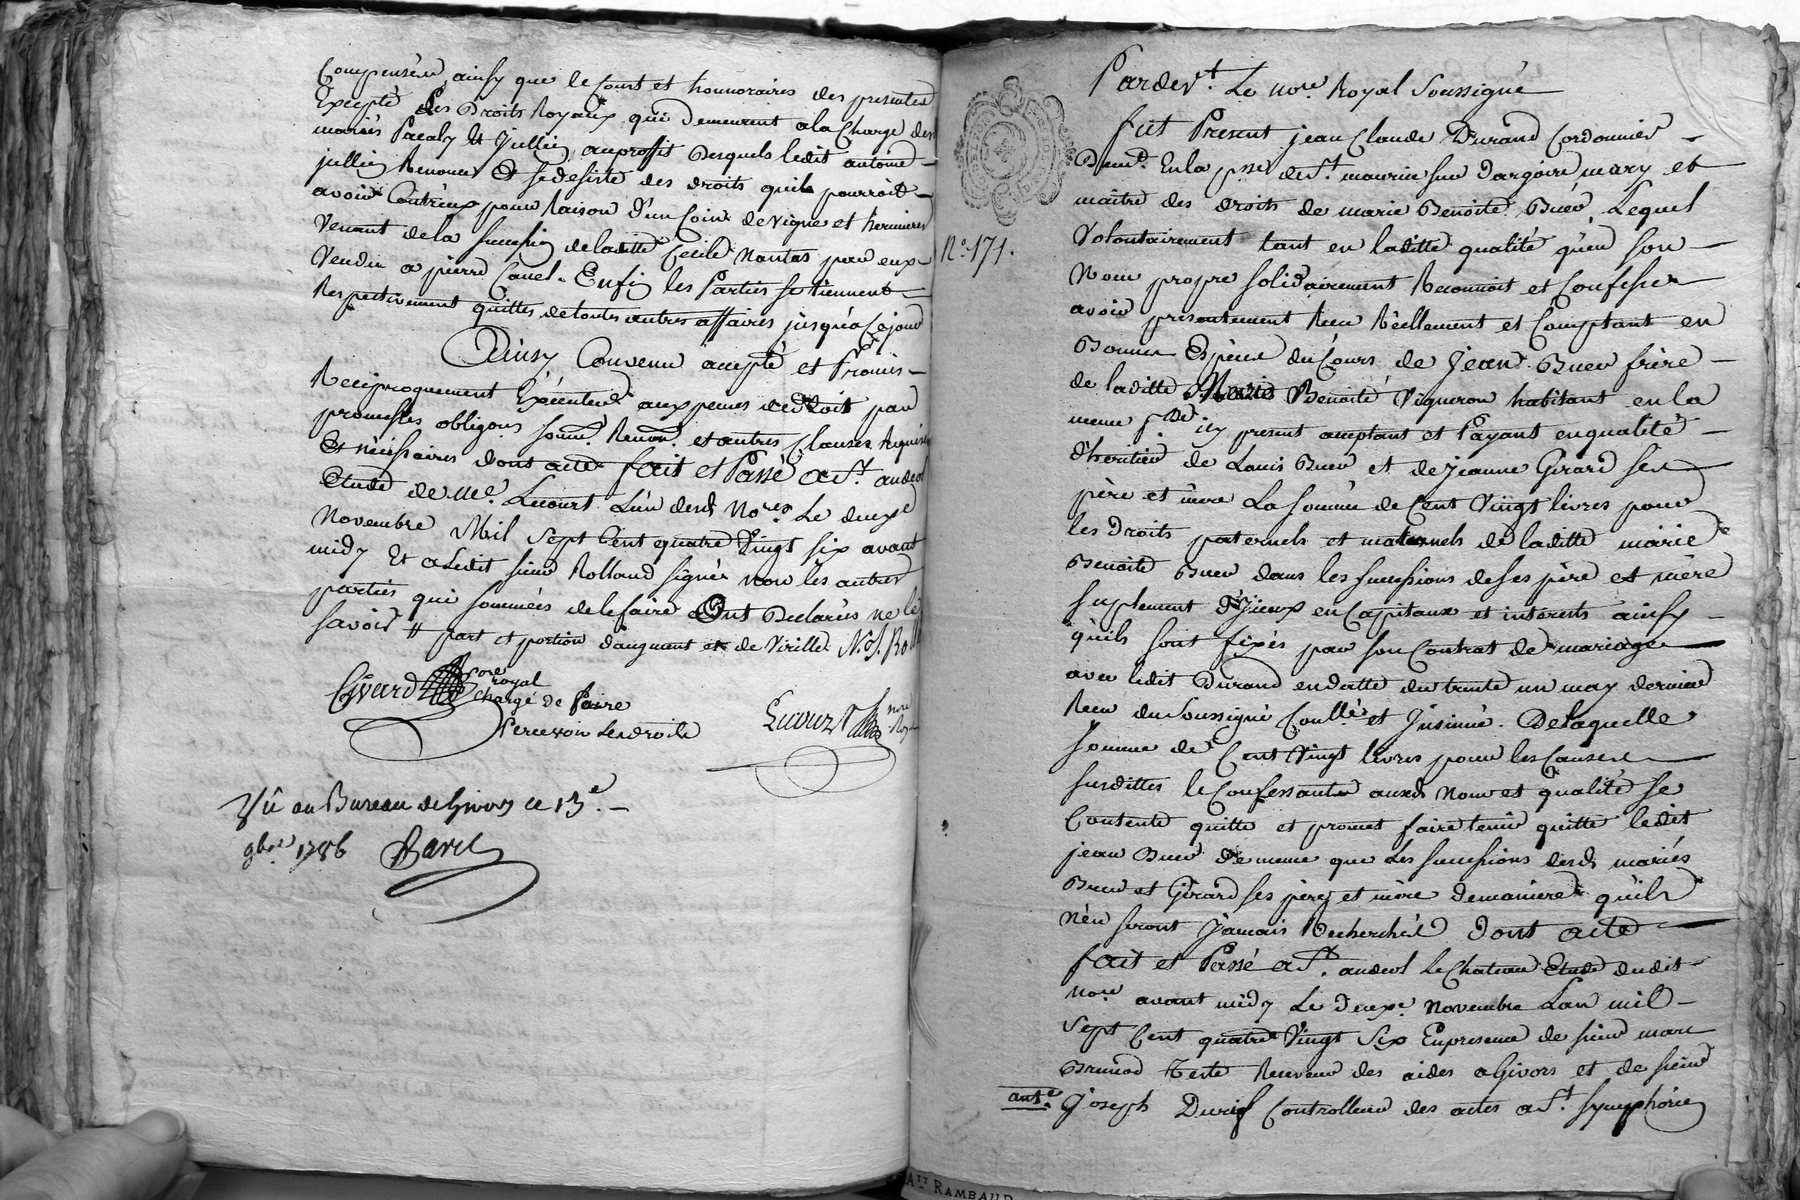 Compensés, ainsy que le Cout et honnoraires des presentes
Excepté les Droits Royaux qui demeurent a la Charge des
mariés Pacaly et Jullien, au proffit desquels ledit antoine
jullien Renonce et se desiste des droits quil pourroit
avoir Contr'eux pour Raison d'un Coin de vigne et hermières
Venant de la succession de laditte Cecile Nantas par eux
Vendu a pierre Canel. Enfin les Parties se tiennent
Respectivement quittes de toutes autres affaires jusqu'a Ce jour
Ainsy Convenu accepté et Promis
Reciproquement Exécuter aux peines de droit par
promesses obligons soum.s Renon.s et autres Clauses Requises
Et nécessaires dont acte fait et Passé a St. andeol
Etude de Me. Lucourt L'un desds Nores Le deuxe
Novembre Mil Sept Cent quatre Vingt six avant
midy Et a Ledit sieur Rolland signé non les autres
parties qui sommées de le faire Ont Declarées ne le
savoir // part et portion d'augment et de Virille N. J. Roll
Girard nore royal
Chargé de faire
Percevoir les droits
Lucourt nore Roy
Vû au Bureau de Givors ce 13e.
9bre 1786 Baret
Pardevt. Le nore Royal Soussigné
fut Present jean Claude Durand Cordonnier
Demt. En la psse de St. maurice sur Dargoire mary et
maître des droits de marie Benoite Buer, Lequel
Volontairement tant en laditte qualité qu'en son
N°. 171.
Nom propre solidairement Reconnoit et Confesse
avoir presentement Reçu Réellement et Comptant en
Bonnes Espèces du Cours de Jean Buer frère
de laditte Marie Benoite Vigneron habitant en la
meme psse icy present acceptant et Payant en qualité
d'heritier de Louis Buer et de jeanne Girard ses
père et mère La somme de Cent Vingt livres pour
les Droits paternels et maternels de laditte marie
Benoite Buer dans les successions de ses père et mère
suplement d'Iceux en Capitaux et intérêts ainsy
qu'ils sont fixés par son Contrat de mariage
avec ledit Durand en datte du trente un may dernier
Reçu du Soussigné Conllé et Insinué. De laquelle
somme de Cent Vingt livres pour les Causes
susdittes le Confessant auxds Nom et qualité se
Contente quitte et promet faire tenir quitte ledit
jean Buer de meme que les successions desds mariés
Buer et Girard ses père et mère de maniere qu'ils
n'en seront Jamais Recherchés dont acte
fait et Passé a St. andeol le Chateau Etude dudit
nore avant midy Le Deuxe Novembre Lan mil
Sept Cent quatre Vingt Six En presence de sieur marc
Brunod Teste Receveur des aides a Givors et de sieur
ante. Joseph Durif Controlleur des actes a St. symphorien
ATT RAMBAUD